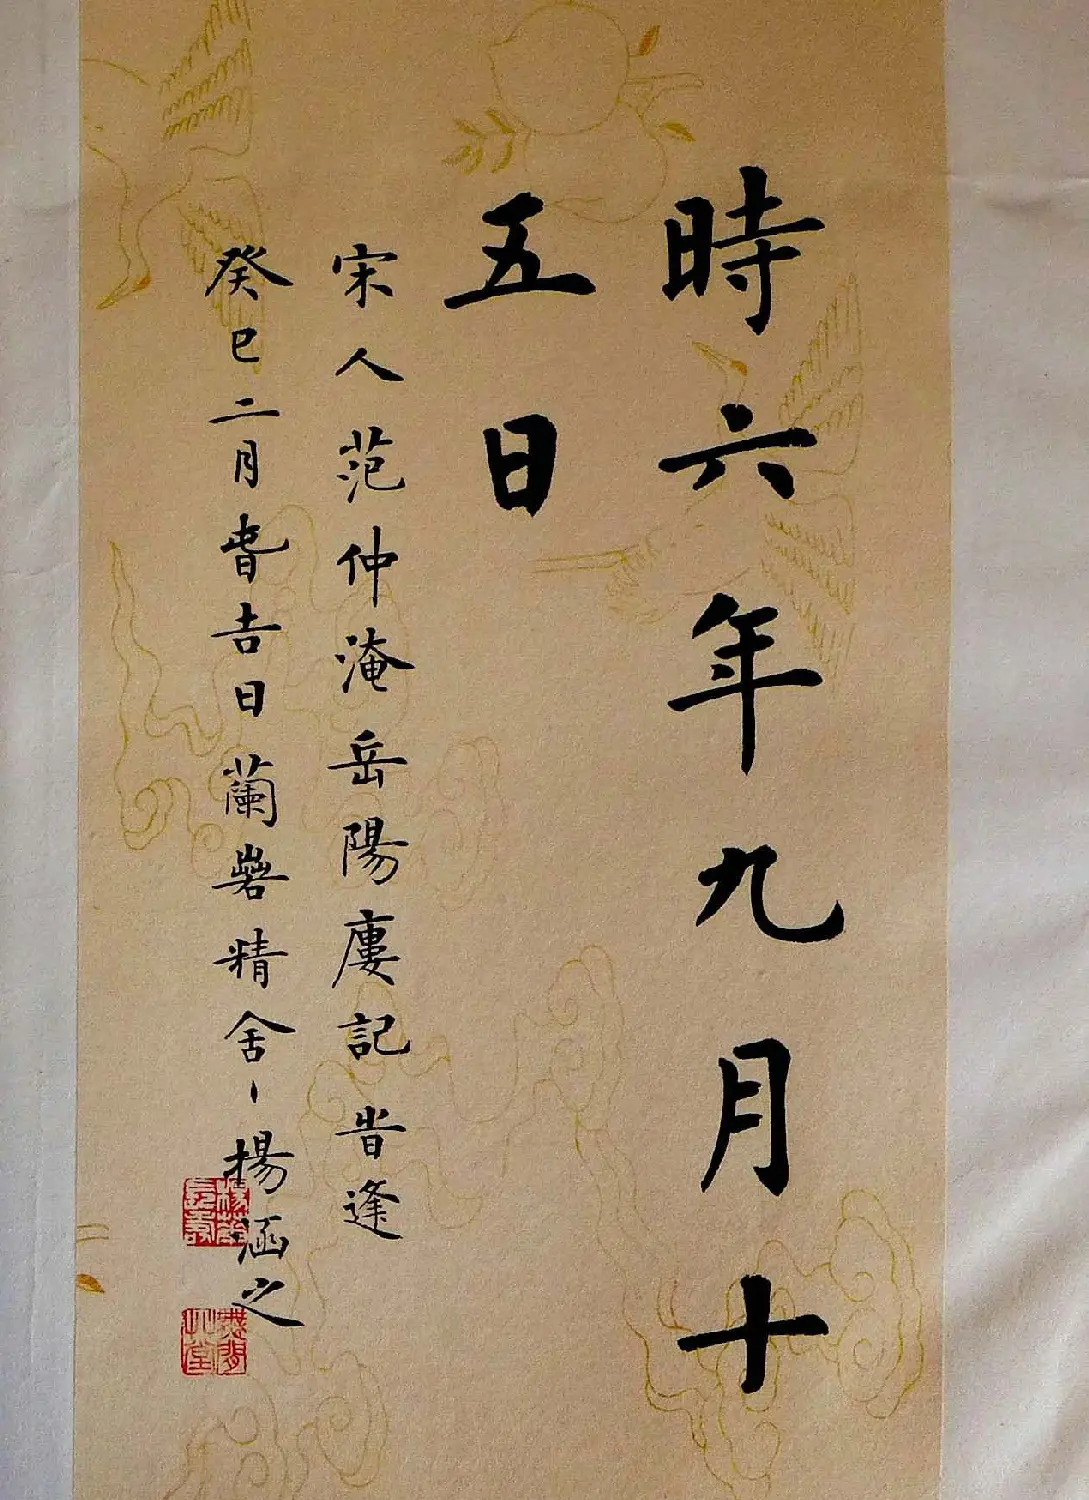 時六年九月十
五日
宋人范仲淹岳陽廔記旹逢
癸巳二月旾吉日蘭礐精舍、楊涵之